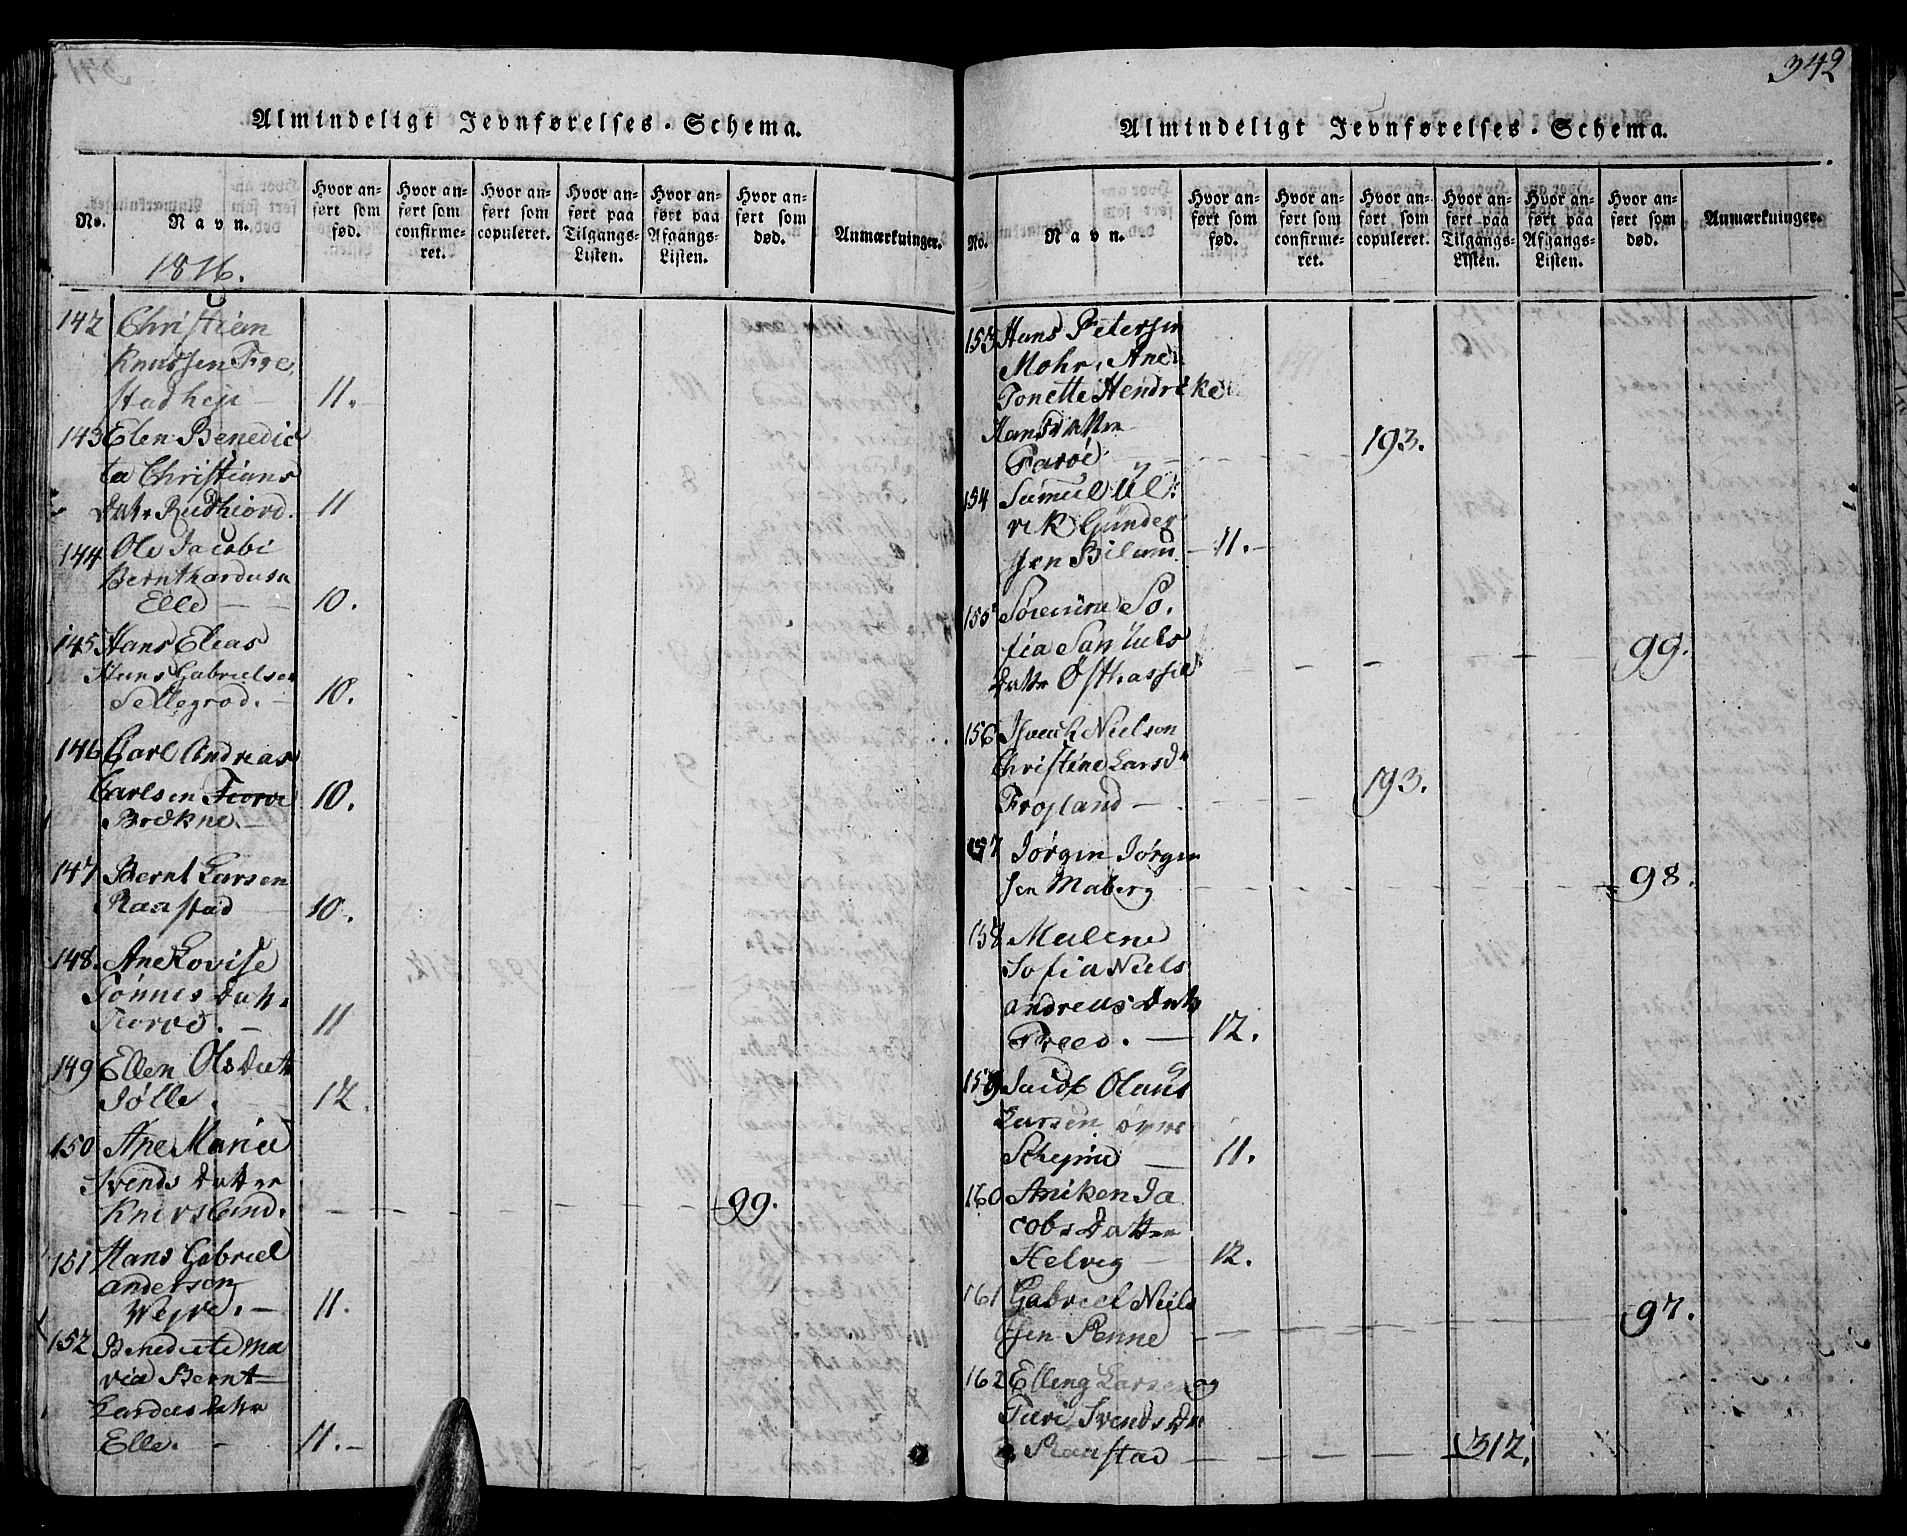 342
Almindeligt Jevnførelses-Schema.
No.
Navn.
Hvor an-
ført som
fød.
Hvor an-
ført som
confirme-
ret.
Hvor an-
ført som
copuleret.
Hvor an-
ført paa
Tilgangs-
Listen.
Hvor an-
ført paa
Afgangs-
Listen.
Hvor an-
ført som
død.
Anmærkninger.
1816.
142 Christian
Knudsen Fre
stadheji — 11.
143 Elen Benedic
ta Christians
Datr Rudhiord. 11
144 Ole Jacobi
Bernthardusn
Elle — — 10.
145 Hans Elias
Hans Gabrielsen
Sellegrod. — 10.
146 Carl Andreas
Carlsen Fiorve 10.
Brækne. —
147 Bernt Larsen
Raastad 10.
148. Ane Lovise
Tönnes Datr
Fiorve. — 11
149 Ellen Ols Datt
Jølle. 12.
150 Ane Maria
Svends Datter
Knivsland. — — — — — 99.
151 Hans Gabriel
Andersen
Wejre. — 11.
152 Benedicte Ma
ria Bernt
hardus Datr
Elle. — 11. —
Almindeligt Jevnførelses-Schema.
No.
Navn.
Hvor an-
ført som
fød.
Hvor an-
ført som
confirme-
ret.
Hvor an-
ført som
copuleret.
Hvor an-
ført paa
Tilgangs-
Listen.
Hvor an-
ført paa
Afgangs-
Listen.
Hvor an-
ført som
død.
Anmærkninger.
153 Hans Petersen
Mohr, Ane
Tonette Hendrike
Hans Datter
Farøe — — — 193.
154 Samuel Ul:
rik Gunder
sen Bilam — 11. —
155 Sörenine So,
fia Samuels
Datr Østhassel — — — — — 99.
156 Nielson
Christine Larsd
Frojland — — — 193.
157 Jørgen Jørgen
sen Maberg — — — — — 98.
158 Malene
Sofia Niels
Andreas Datr
Preed. — 12.
159 Jacob Olaus
Larsen øvre
Schejnie — 11.
160 Aniken Ja
cobs Datter
Helvig — 12.
161 Gabriel Niels
sen Penne — — — — — 97.
162 Elling Larsen og
Turi Svends Dr
Raastad — — — — 312.